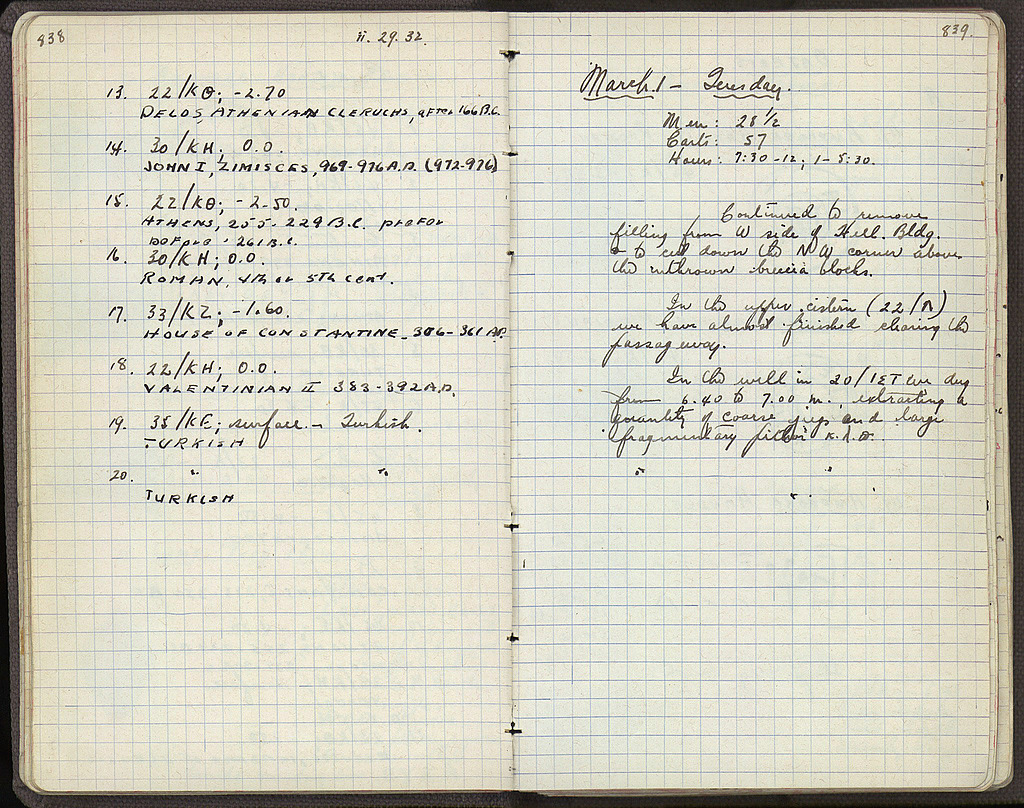 838
ii. 29. 32.
13. 22/ΚΘ; -2.70
DELOS, ATHENIAN CLERUCHS, after 166 B.C.
14. 30/ΚΗ; 0.0.
JOHN I, ZIMISCES, 969-976 A.D. (972-976)
15. 22/ΚΘ; -2.50.
ATHENS, 255-229 B.C.
261 B.C.
16. 30/ΚΗ; 0.0.
ROMAN, 4th or 5th cent.
17. 33/ΚΖ; -1.60.
HOUSE OF CONSTANTINE - 306-361 A.D.
18. 22/ΚΗ; 0.0.
VALENTINIAN II 383-392 A.D.
19. 35/ΚΕ; surface - Turkish.
TURKISH
20. " "
TURKISH
839.
March 1 - Tuesday.
Men: 28 1/2
Carts: 57
Hours: 7:30-12; 1-5:30.
Continued to remove
filling from W side of Hell. Bldg.
& to cut down the NW corner above
the inthrown breccia blocks.
In the upper cistern (22/Λ)
we have almost finished clearing the
passageway.
In the well in 20/ΙΣΤ we dug
from 6.40 to 7.00 m., extracting a
quantity of coarse jugs and large
fragmentary pithoi κ.λ.π.